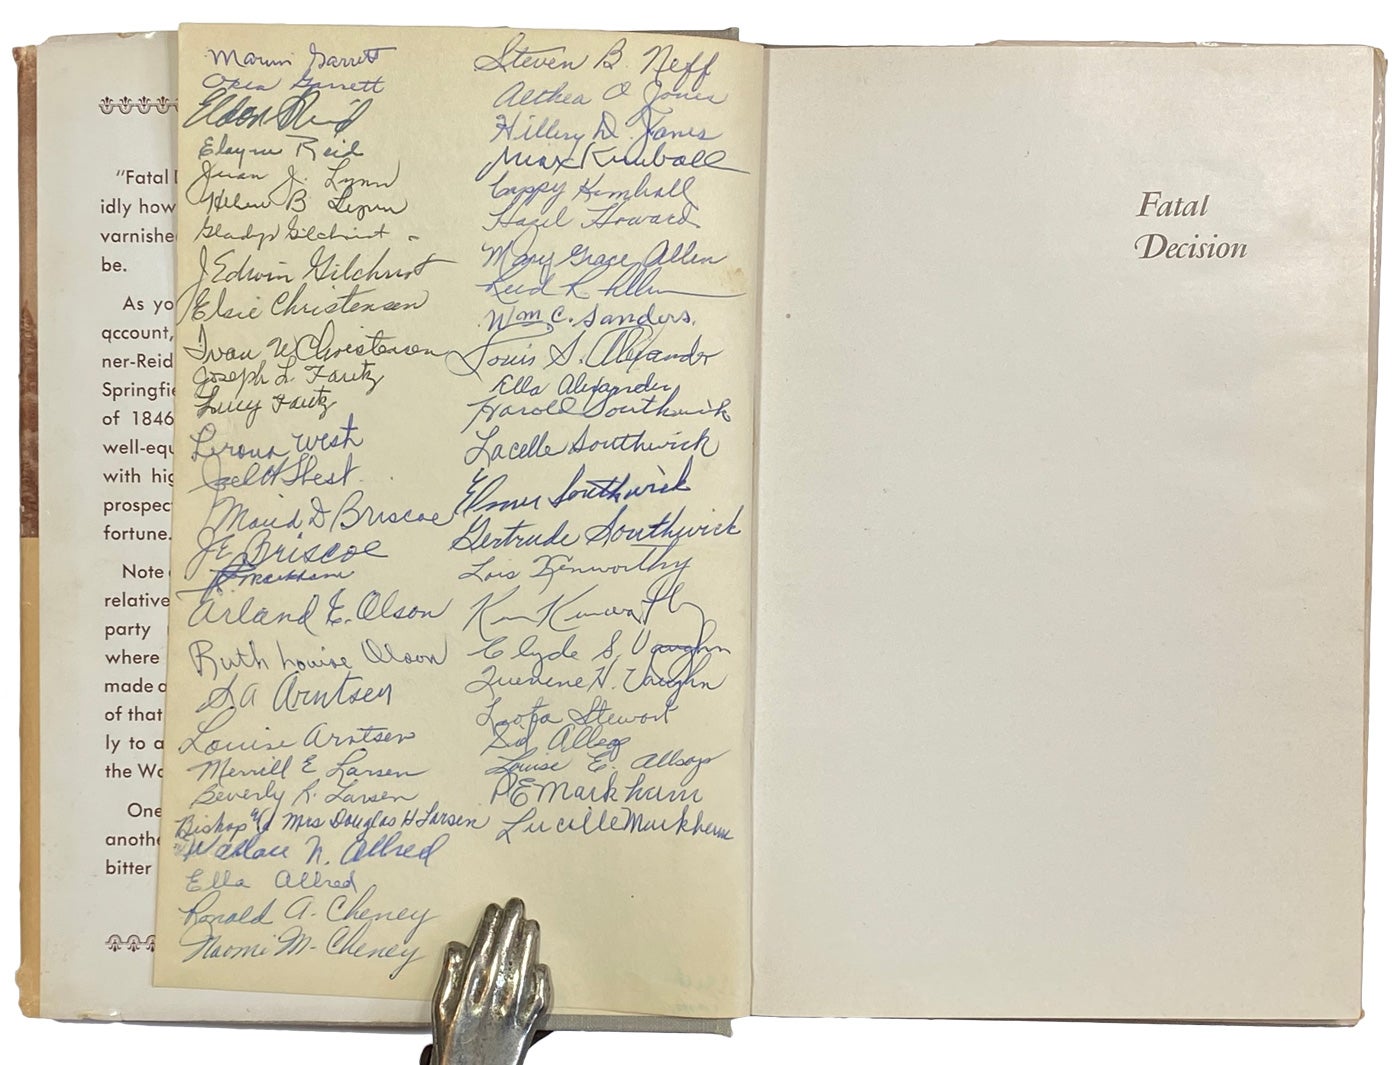 "Fatal
idly how
varnishe
be.
As yo
qccount,
ner-Reid
Springfie
of 1846
well-equ
with hig
prospec
fortune.
Note
relative
party
where
made a
of that
ly to a
the Wa
One
anothe
bitter
Marvin Garrett
Garrett
Eldon Reid
Elayne Reid
J. Lynn
Helen B. Lynn
Gladys Gilchrist
J Edwin Gilchrist
Elsie Christensen
Ivan W Christensen
Joseph L. Fautz
Lucy Fautz
West
Joel H West
Maud D Briscoe
J E Briscoe
Markham
Arland E. Olson
Ruth Louise Olson
S. A Arntsen
Louise Arntsen
Merrill E Larsen
Beverly R. Larsen
Bishop & Mrs Douglas H Larsen
Wallace N. Allred
Ella Allred
Ronald A. Cheney
Naomi M. Cheney
Steven B. Neff
Althea O Jones
Hillery D. Jones
Max Kimball
Cappy Kimball
Hazel Howard
Mary Grace Allen
Reid R. Allen
Wm C. Sanders.
Louis S. Alexander
Ella Alexander
Harold Southwick
Lacelle Southwick
Elmer Southwick
Gertrude Southwick
Lois Kenworthy
Kenworthy
Clyde S. Vaughn
H. Vaughn
Stewart
Sid Allsop
Louise E. Allsop
P E Markham
Lucille Markham
Fatal
Decision